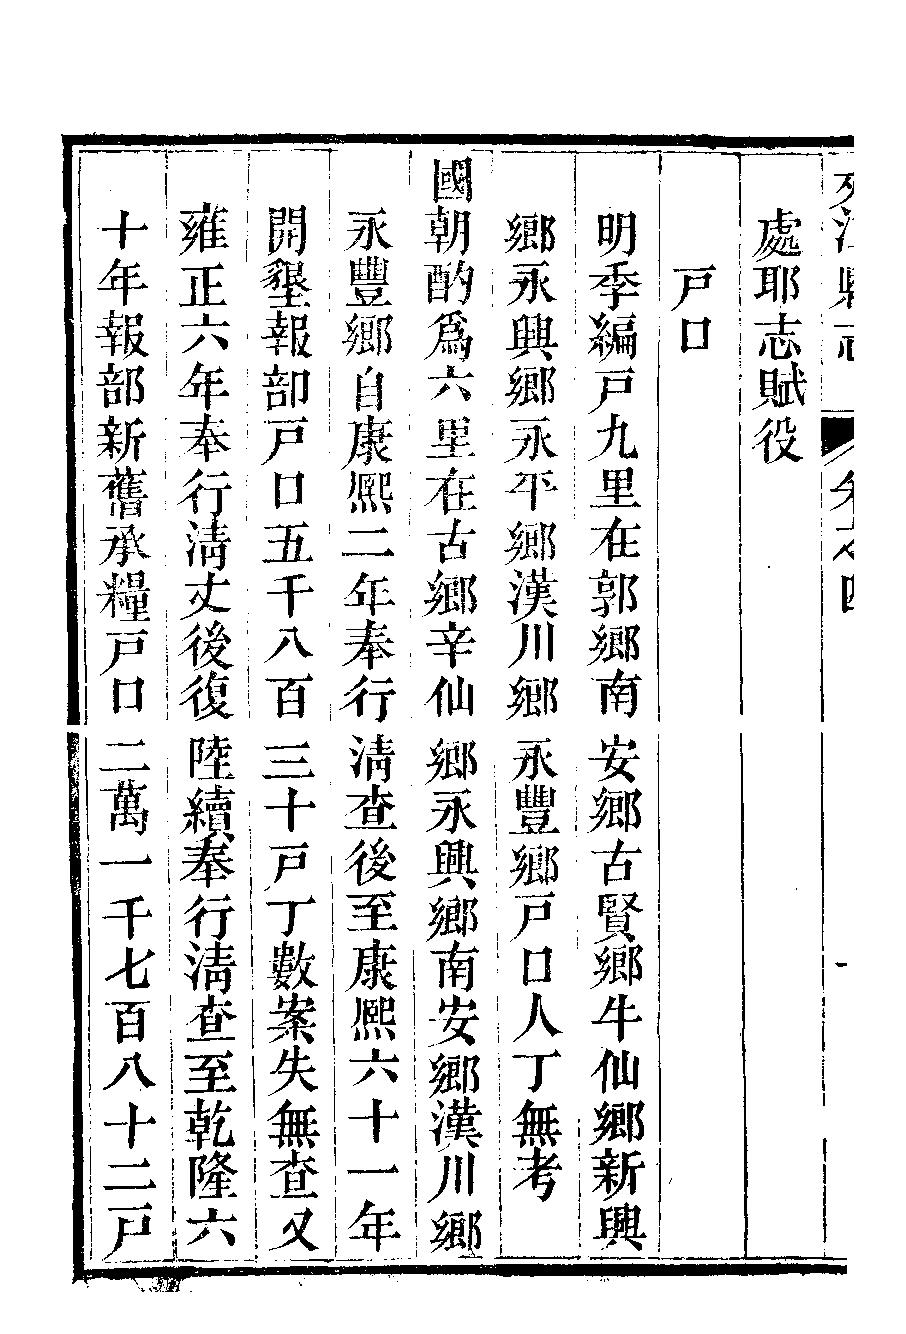 縣志 卷之四
處耶志賦役
戶口
明季編戶九里在郭鄉南安鄉古賢鄉牛仙鄉新興
鄉永興鄉永平鄉漢川鄉永豐鄉戶口人丁無考
國朝酌爲六里在古鄉辛仙鄉永興鄉南安鄉漢川鄉
永豐鄉自康熙二年奉行清查後至康熙六十一年
開墾報部戶口五千八百三十戶丁數案失無查又
雍正六年奉行清丈後復陸續奉行清查至乾隆六
十年報部新舊承糧戶口二萬一千七百八十二戶